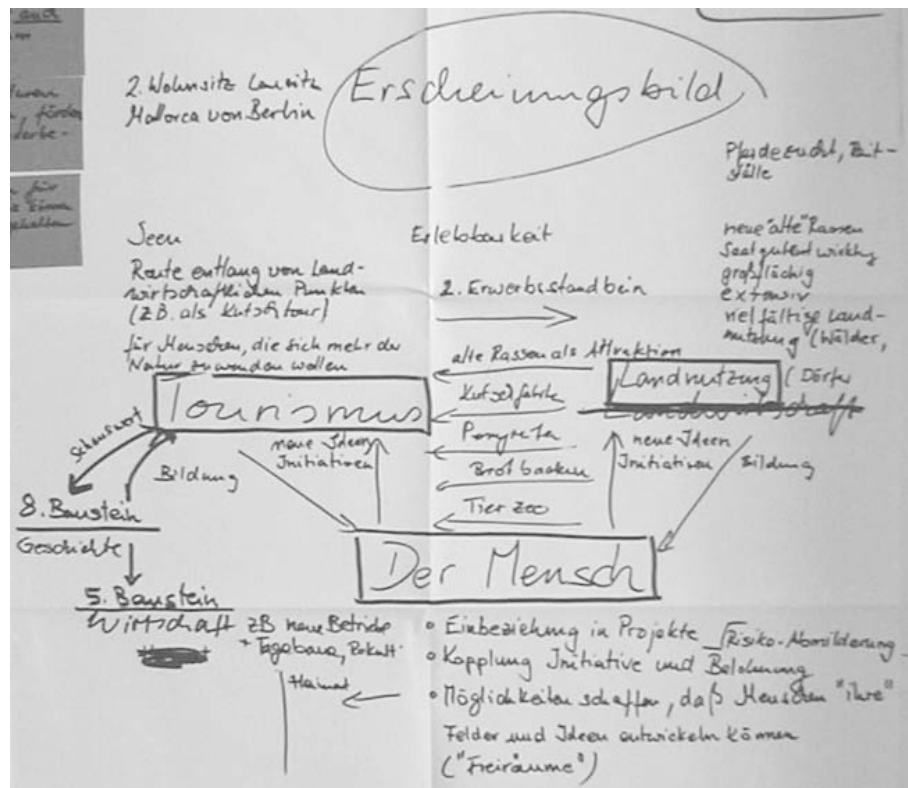 2. Wohnsitz Lausitz
Mallorca von Berlin
Erscheinungsbild
Pferdezucht, Reit-
ställe
Seen
Route entlang von Land-
wirtschaftlichen Punkten
(z.B. als Kutschtour)
für Menschen, die sich mehr der
Natur zuwenden wollen
Erlebbarkeit
2. Erwerbsstandbein
neue "alte" Rassen
Saatgutentwicklung
großflächig
extensiv
vielfältige Land-
nutzung (Wälder,
(Dörfer
alte Rassen als Attraktion
Kutschfahrten
Ponyreiten
Brot backen
Tierzoo
Tourismus
Landnutzung
Landwirtschaft
Sehenswert
Bildung
neue Ideen
Initiativen
neue Ideen
Initiativen
Bildung
8. Baustein
Geschichte
Der Mensch
5. Baustein
Wirtschaft
zB neue Betriebe
+ Tagebaue,
Heimat
• Einbeziehung in Projekte Risiko-Abmilderung
• Kopplung Initiative und Belohnung
• Möglichkeiten schaffen, daß Menschen "ihre"
Felder und Ideen entwickeln können
("Freiräume")